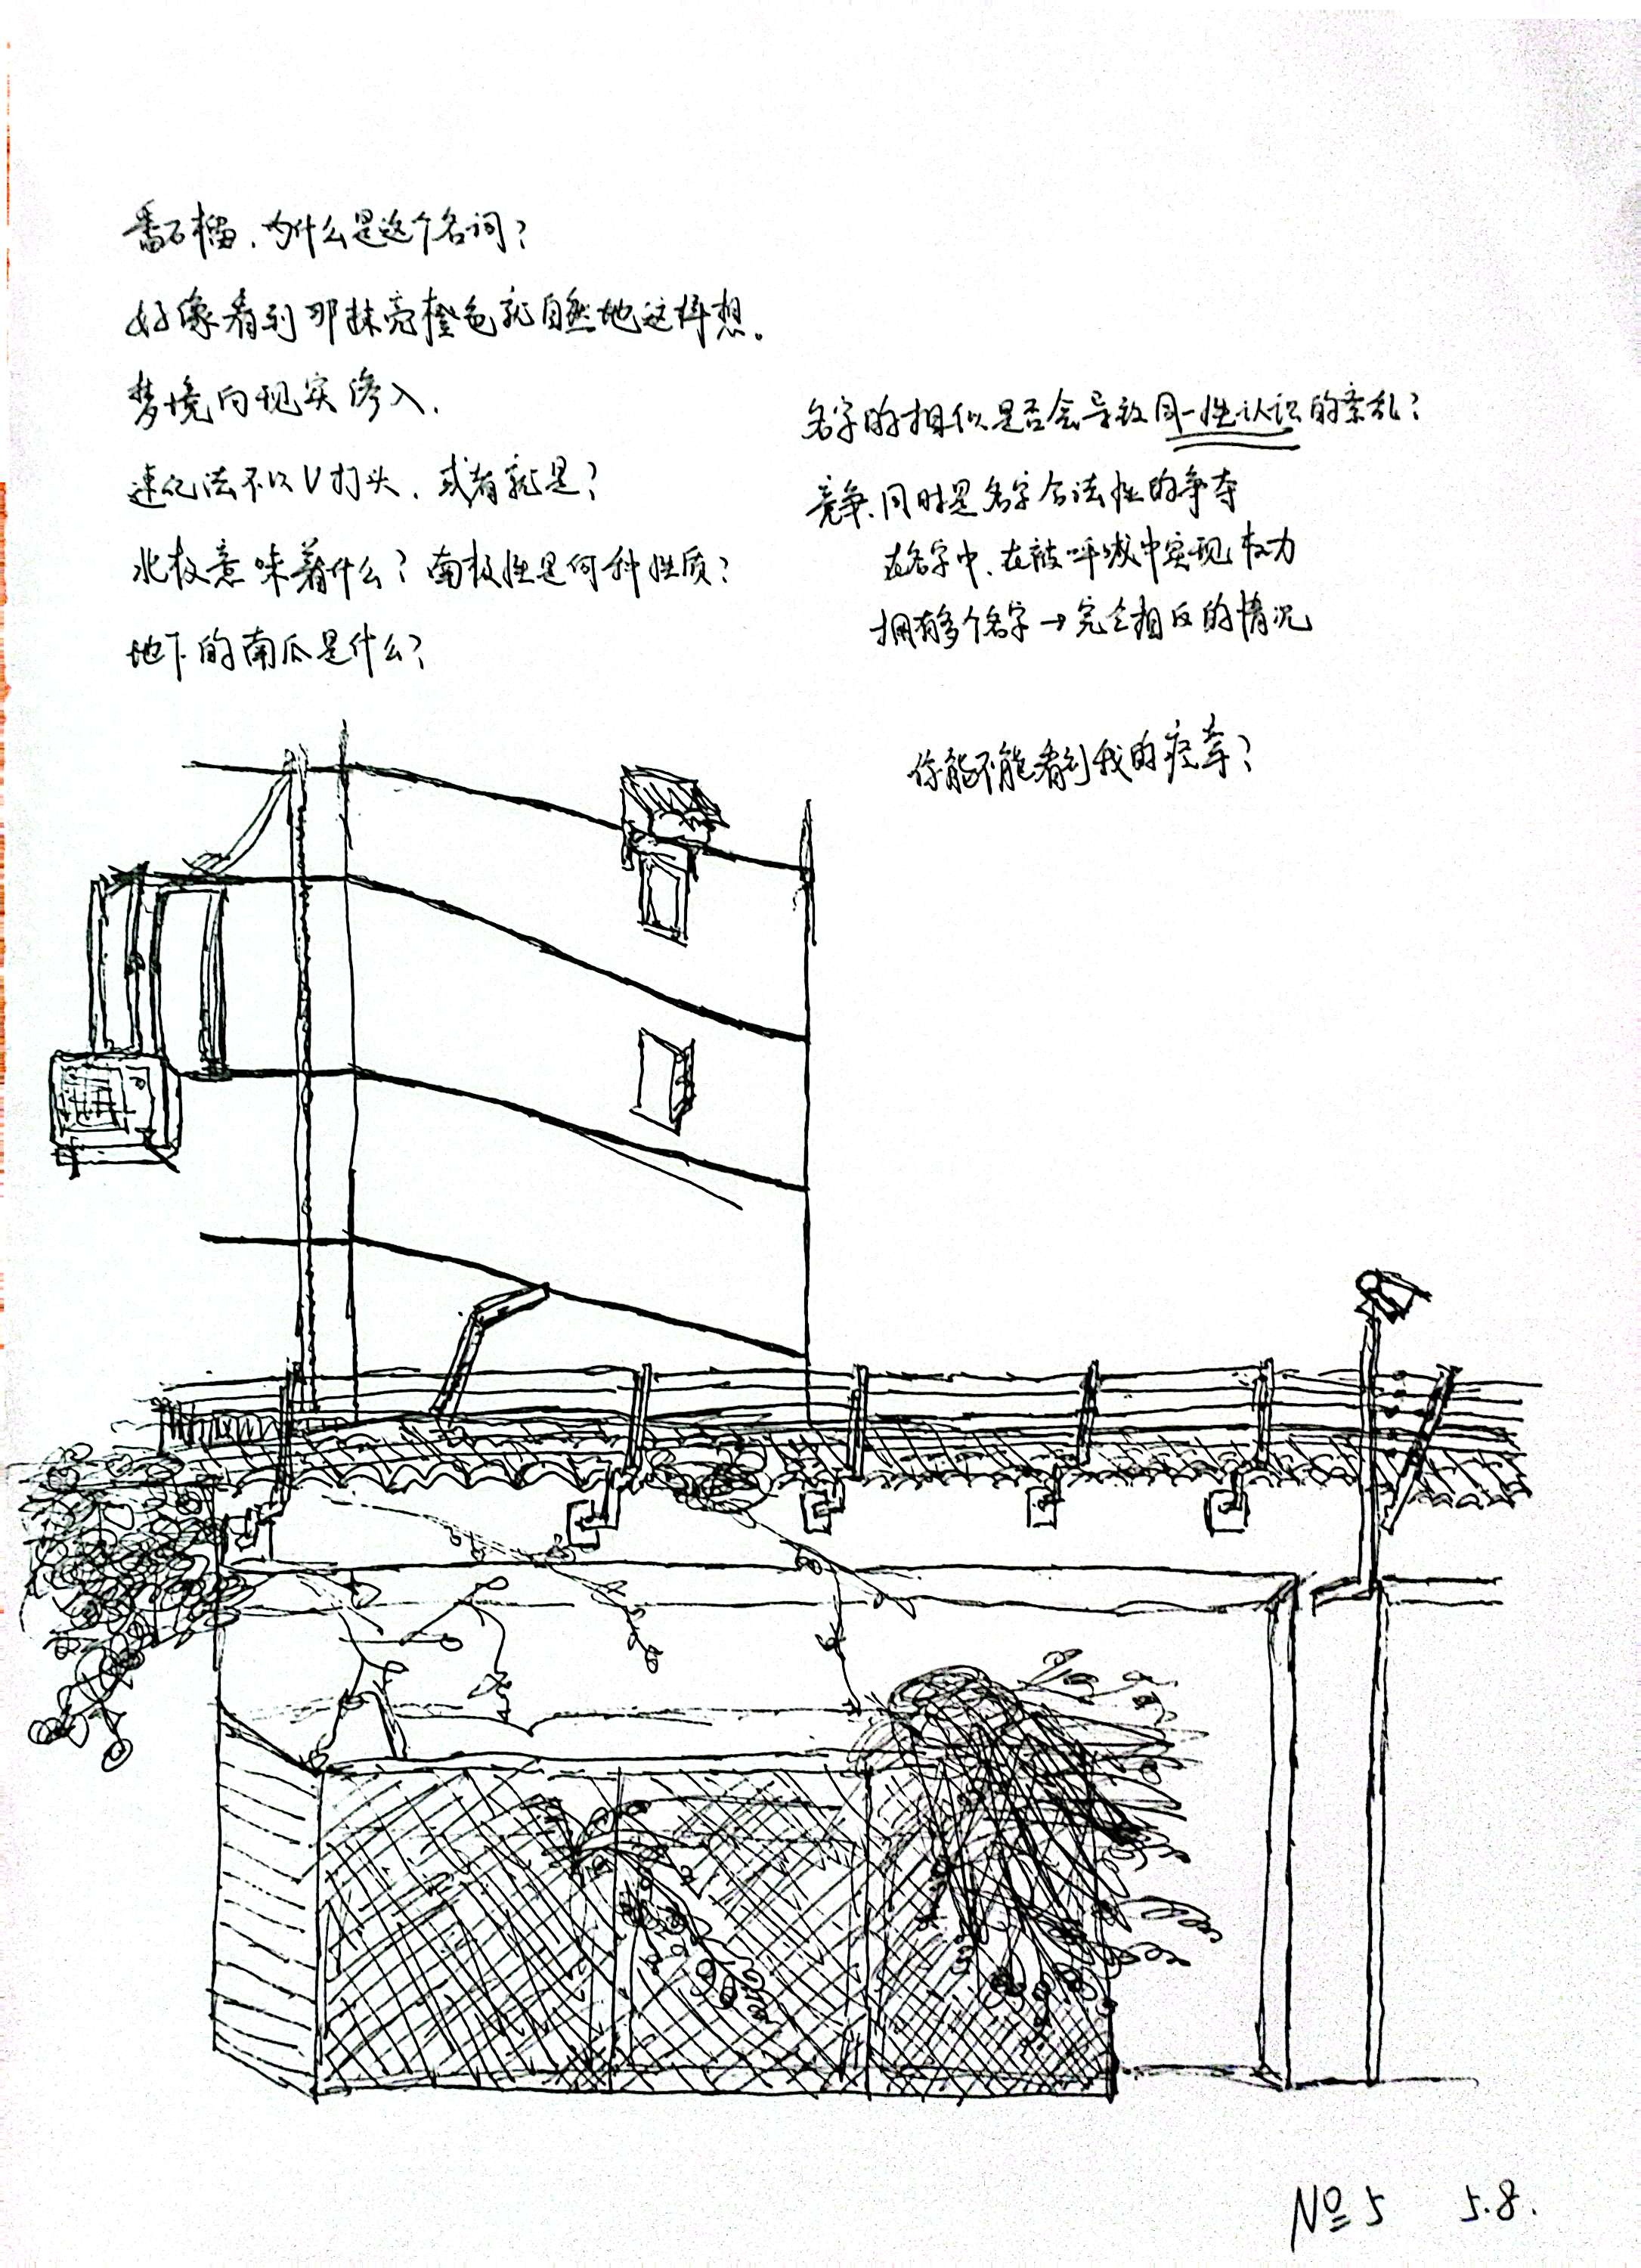 番石榴.为什么是这个名词?
好像看到那抹亮橙色就自然地这样想。
梦境向现实渗入.
速记法不以V打头.或者就是?
北极意味着什么?南极性是何种性质?
地下的南瓜是什么?
名字的相似是否会导致同一性认识的紊乱?
竞争.同时是名字合法性的争夺
在名字中.在被呼喊中实现权力
拥有多个名字→完全相反的情况
你能不能看到我的痉挛?
№5 5.8.